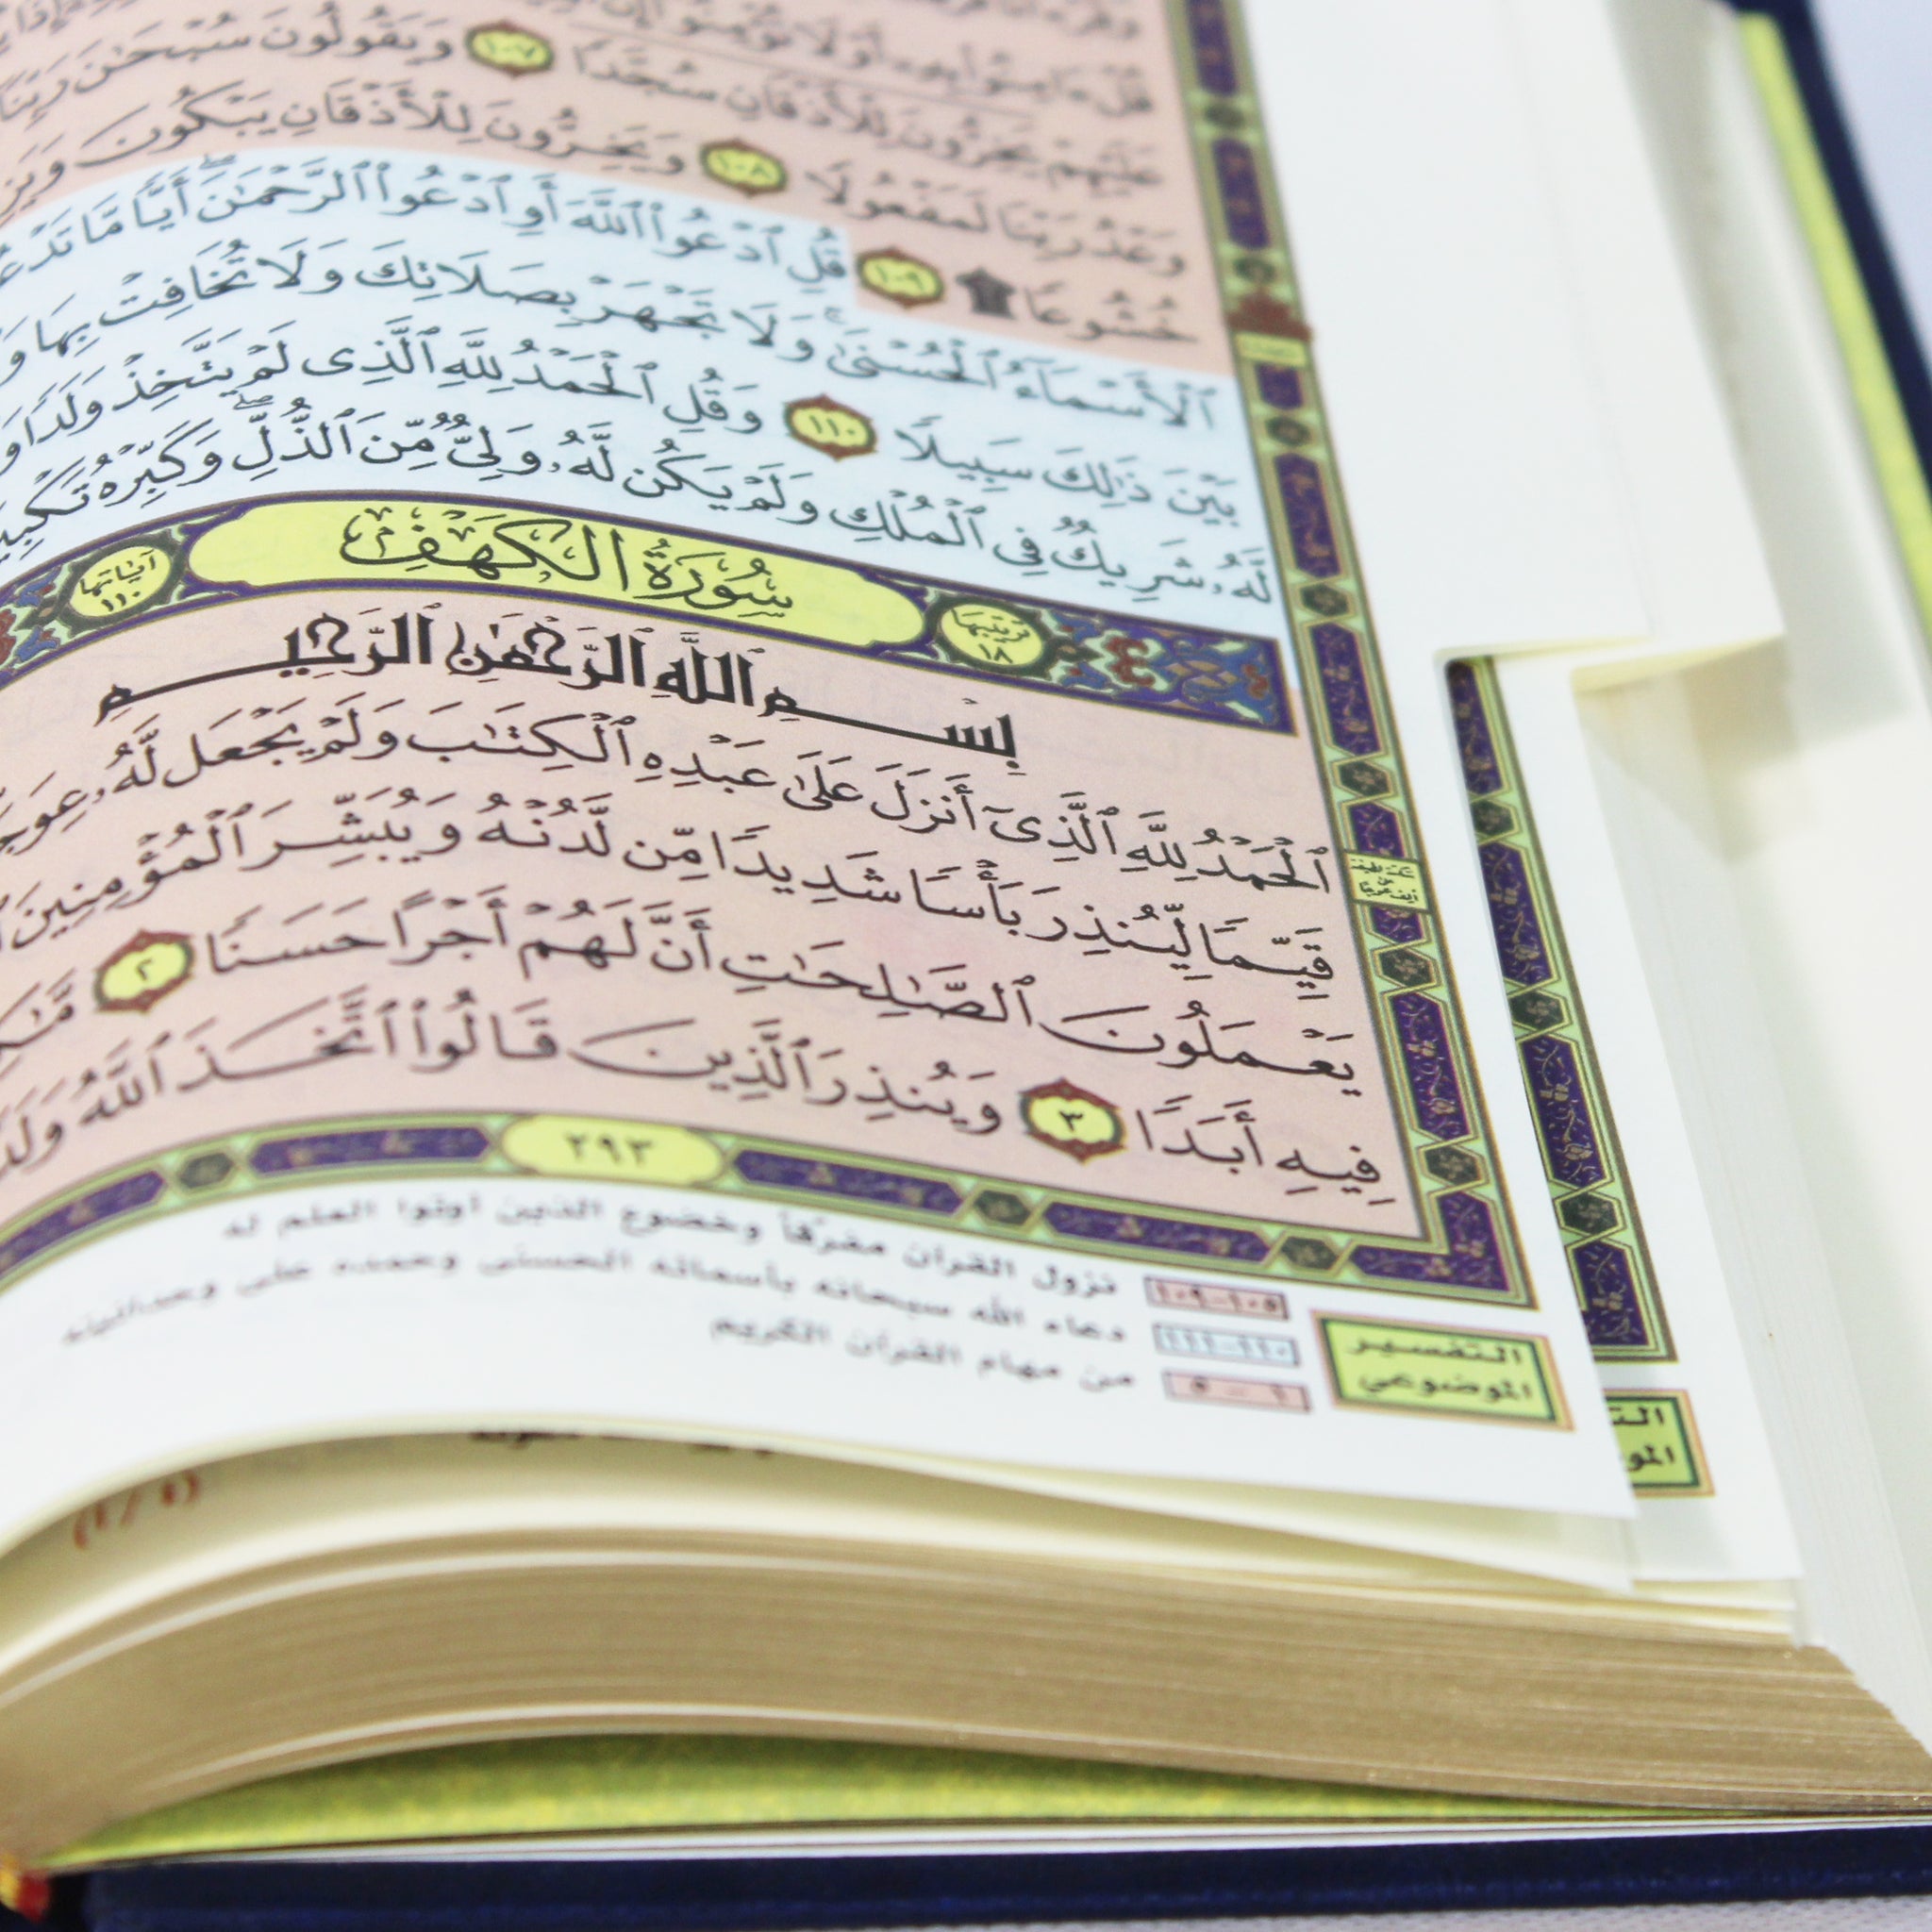 قُلْ ءَامِنُوا۟ بِهِۦٓ أَوْ لَا تُؤْمِنُوٓا۟
عَلَيْهِمْ يَخِرُّونَ لِلْأَذْقَانِ سُجَّدًا ١٠٧ وَيَقُولُونَ سُبْحَٰنَ رَبِّنَآ
وَعْدُ رَبِّنَا لَمَفْعُولًا ١٠٨ وَيَخِرُّونَ لِلْأَذْقَانِ يَبْكُونَ
خُشُوعًا ١٠٩ قُلِ ٱدْعُوا۟ ٱللَّهَ أَوِ ٱدْعُوا۟ ٱلرَّحْمَٰنَ أَيًّا مَّا
ٱلْأَسْمَآءُ ٱلْحُسْنَىٰ وَلَا تَجْهَرْ بِصَلَاتِكَ وَلَا تُخَافِتْ بِهَا
بَيْنَ ذَٰلِكَ سَبِيلًا ١١٠ وَقُلِ ٱلْحَمْدُ لِلَّهِ ٱلَّذِى لَمْ يَتَّخِذْ وَلَدًا
لَّهُۥ شَرِيكٌ فِى ٱلْمُلْكِ وَلَمْ يَكُن لَّهُۥ وَلِىٌّ مِّنَ ٱلذُّلِّ وَكَبِّرْهُ
ترتيبها ١٨ سُورَةُ الكَهْفِ آياتها ١١٠
بِسْمِ ٱللَّهِ ٱلرَّحْمَٰنِ ٱلرَّحِيمِ
ٱلْحَمْدُ لِلَّهِ ٱلَّذِىٓ أَنزَلَ عَلَىٰ عَبْدِهِ ٱلْكِتَٰبَ وَلَمْ يَجْعَل لَّهُۥ
قَيِّمًا لِّيُنذِرَ بَأْسًا شَدِيدًا مِّن لَّدُنْهُ وَيُبَشِّرَ ٱلْمُؤْمِنِينَ
يَعْمَلُونَ ٱلصَّٰلِحَٰتِ أَنَّ لَهُمْ أَجْرًا حَسَنًا ٢
فِيهِ أَبَدًا ٣ وَيُنذِرَ ٱلَّذِينَ قَالُوا۟ ٱتَّخَذَ ٱللَّهُ
٢٩٣
التفسير الموضوعي
١٠٥-١٠٩ نزول القرآن مفرّقاً وخضوع الذين أوتوا العلم له
١١٠-١١١ دعاء الله سبحانه بأسمائه الحسنى وحمده على وحدانيته
١-٥ من مهام القرآن الكريم